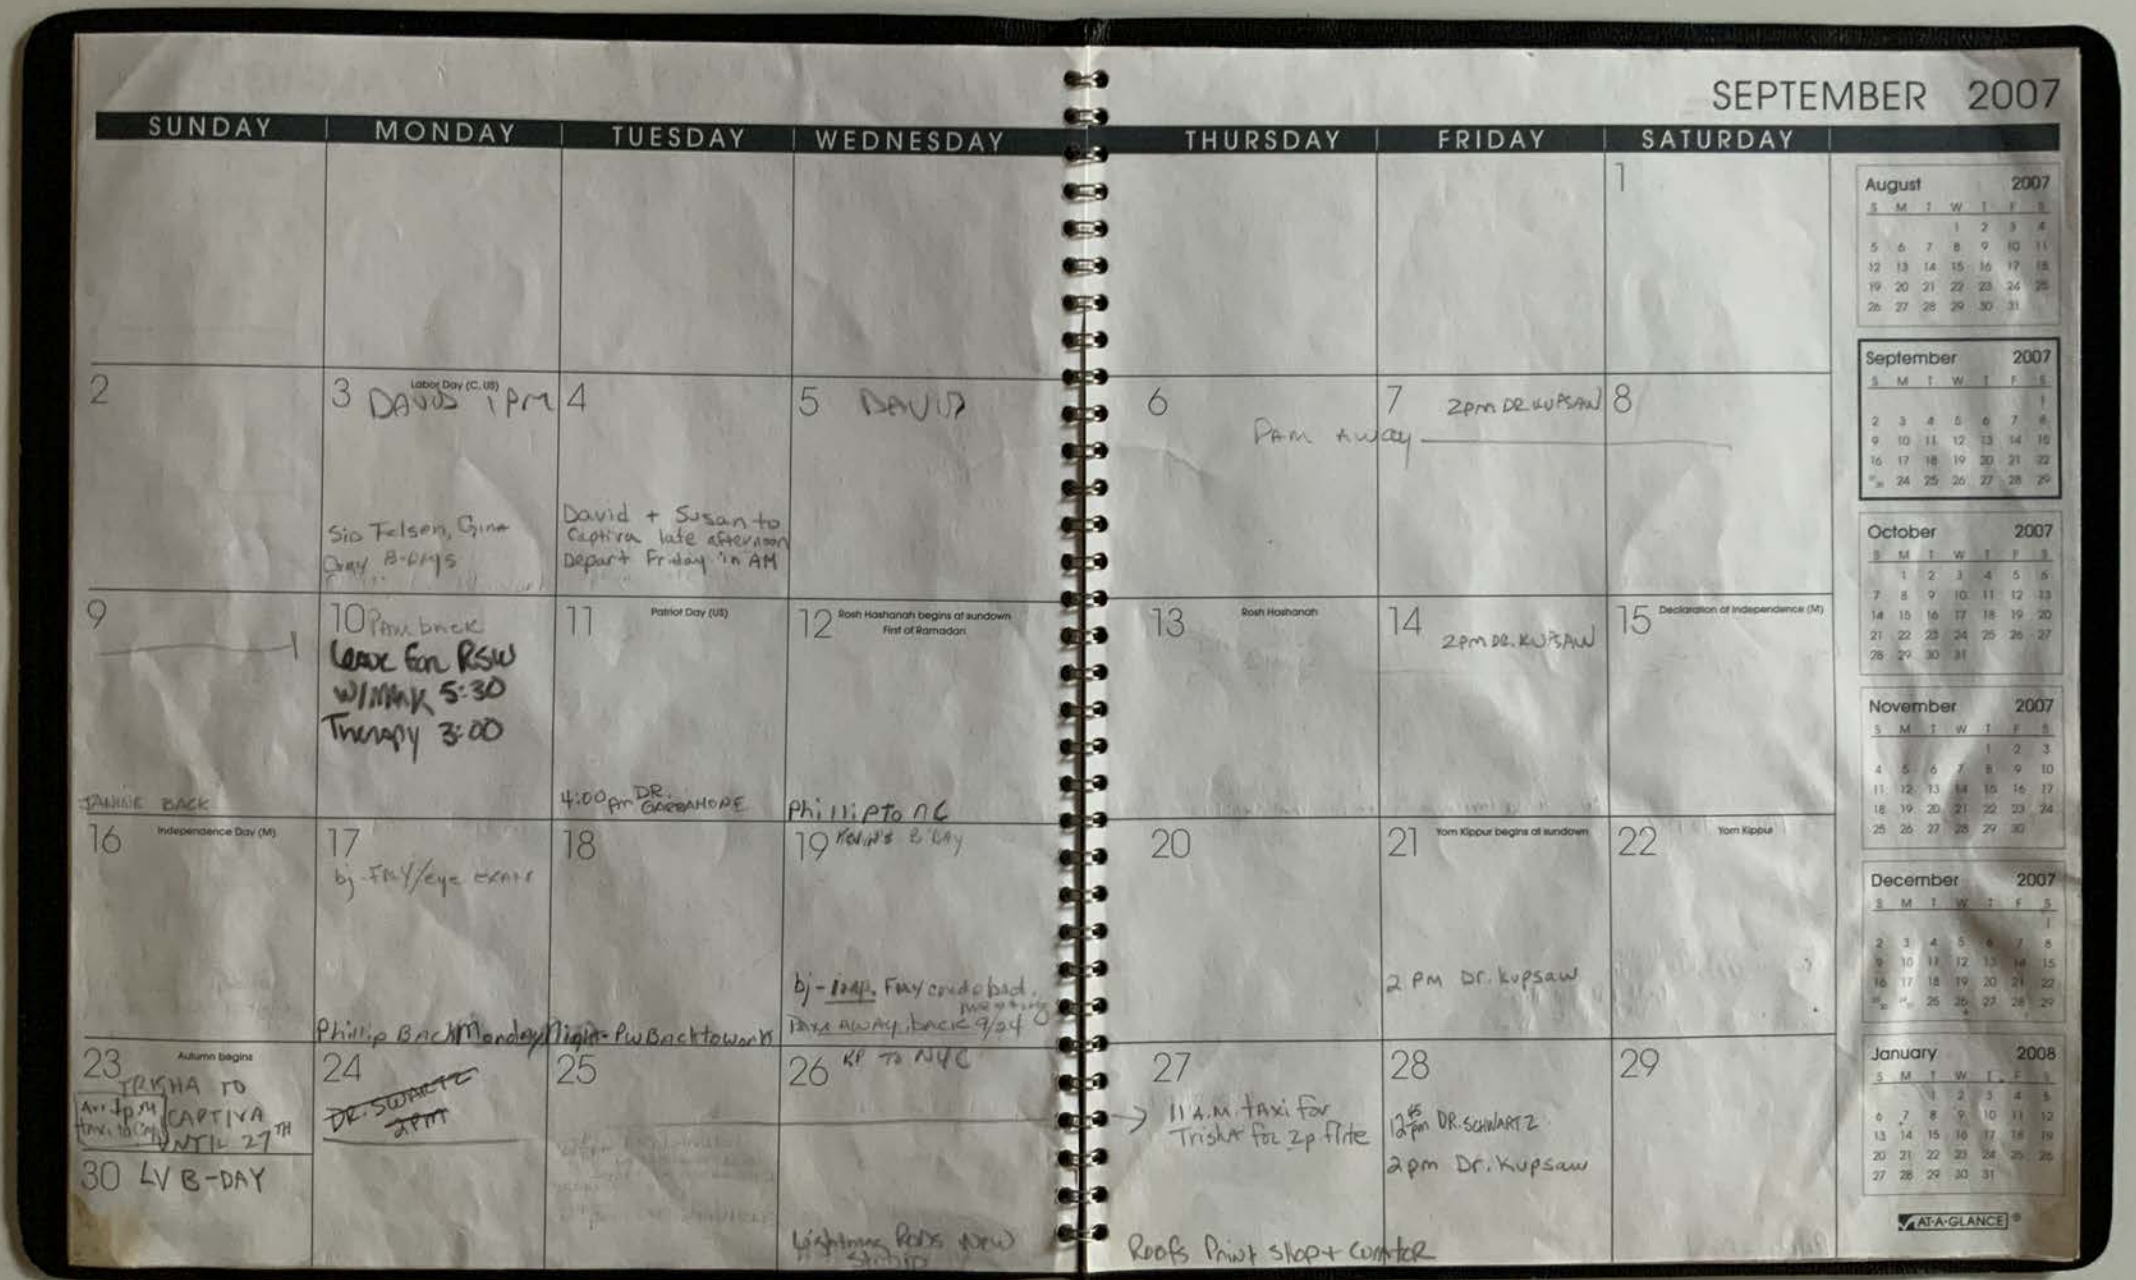 SEPTEMBER 2007
SUNDAY MONDAY TUESDAY WEDNESDAY THURSDAY FRIDAY SATURDAY
1
2
3 Labor Day (C, US)
DAVID 1 PM
Sio Telsen, Gina
Gray B-DAYS
4
David + Susan to
Captiva late afternoon
Depart Friday in AM
5 DAVID
6
PAM AWAY
7 2pm DR KUPSAW
8
9
JANINE BACK
10 PAM back
Leave for RSW
W/MARK 5:30
Therapy 3:00
11 Patriot Day (US)
4:00 pm DR.
12 Rosh Hashanah begins at sundown
First of Ramadan
Phillip to NC
13 Rosh Hashanah
14
2PM DR. KUPSAW
15 Declaration of Independence (M)
16 Independence Day (M)
17
bj - FMY/eye exam
Phillip Back Monday Night - PW Back to work
18
19 B DAY
bj - FMY condo bad.
meeting
PAM AWAY, back 9/24
20
21 Yom Kippur begins at sundown
2 PM Dr. Kupsaw
22 Yom Kippur
23 Autumn begins
TRISHA TO
CAPTIVA
UNTIL 27TH
Arr 1pm
taxi to Cap
24
DR. SWARTZ
2PM
25
26 RP TO NYC
Lightning Rods New
27
11 A.M. taxi for
Trisha for 2p flite
Roofs Print Shop +
28
12 45 pm DR. SCHWARTZ
2pm Dr. Kupsaw
29
30 LV B-DAY
August 2007
S M T W T F S
1 2 3 4
5 6 7 8 9 10 11
12 13 14 15 16 17 18
19 20 21 22 23 24 25
26 27 28 29 30 31
September 2007
S M T W T F S
1
2 3 4 5 6 7 8
9 10 11 12 13 14 15
16 17 18 19 20 21 22
23/30 24 25 26 27 28 29
October 2007
S M T W T F S
1 2 3 4 5 6
7 8 9 10 11 12 13
14 15 16 17 18 19 20
21 22 23 24 25 26 27
28 29 30 31
November 2007
S M T W T F S
1 2 3
4 5 6 7 8 9 10
11 12 13 14 15 16 17
18 19 20 21 22 23 24
25 26 27 28 29 30
December 2007
S M T W T F S
1
2 3 4 5 6 7 8
9 10 11 12 13 14 15
16 17 18 19 20 21 22
23/30 24/31 25 26 27 28 29
January 2008
S M T W T F S
1 2 3 4 5
6 7 8 9 10 11 12
13 14 15 16 17 18 19
20 21 22 23 24 25 26
27 28 29 30 31
AT-A-GLANCE®